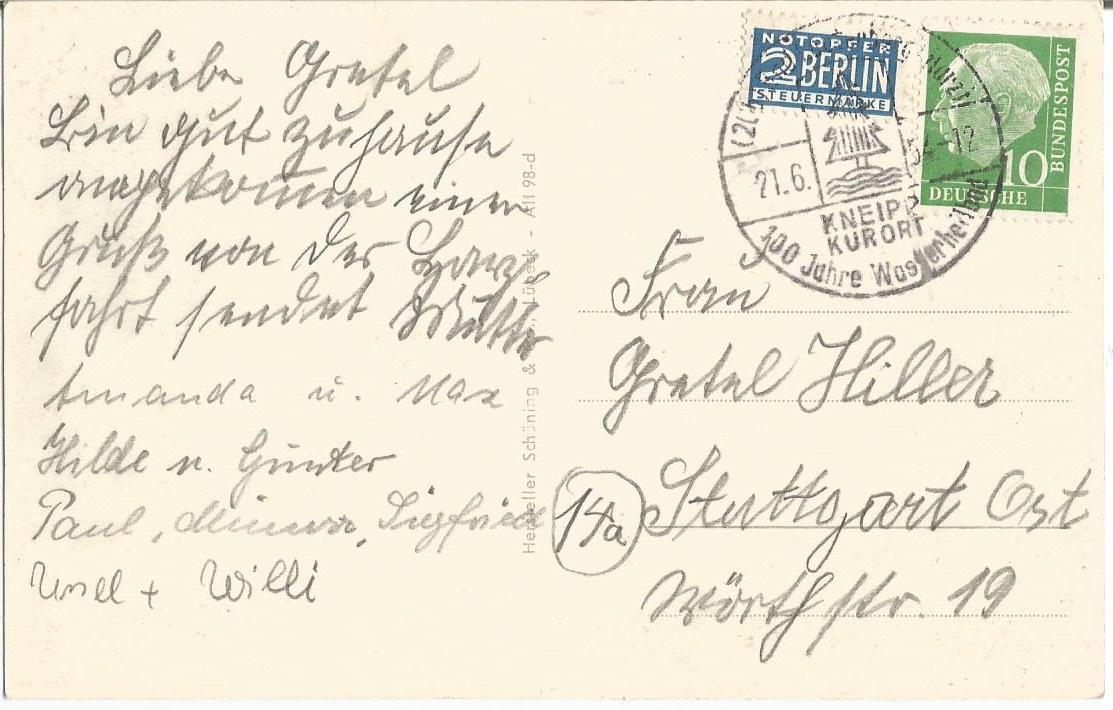 Liebe Gretel
Bin gut zuhause
angekomen einen
Gruß von der Harz
fahrt sendet Mutter
Amanda u. Max
Hilde u. Günter
Paul, Minna, Siegfried
Ursel + Willi
Hersteller Schöning & Lübeck - All 98-d
NOTOPFER
2 BERLIN
STEUERMARKE
BUNDESPOST
10
DEUTSCHE
(20
21.6. 54-12
KNEIPP
KURORT
100 Jahre Wasserheilbad
Frau
Gretel Hiller
14a Stuttgart Ost
Wörthstr. 19